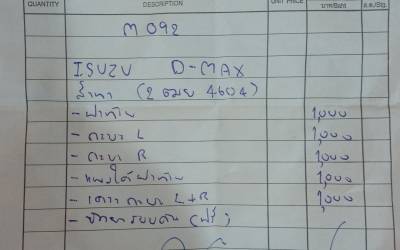 QUANTITY DESCRIPTION UNIT PRICE บาท/Baht ส.ต./Stg.
M 092
ISUZU D-MAX
สีเทา (2 ฒย 4604)
- ฝาท้าย 1,000
- กระบะ L 1,000
- กระบะ R 1,000
- แผงใต้ฝาท้าย 1,000
- เสากระบะ L+R 1,000
- (ฟรี)